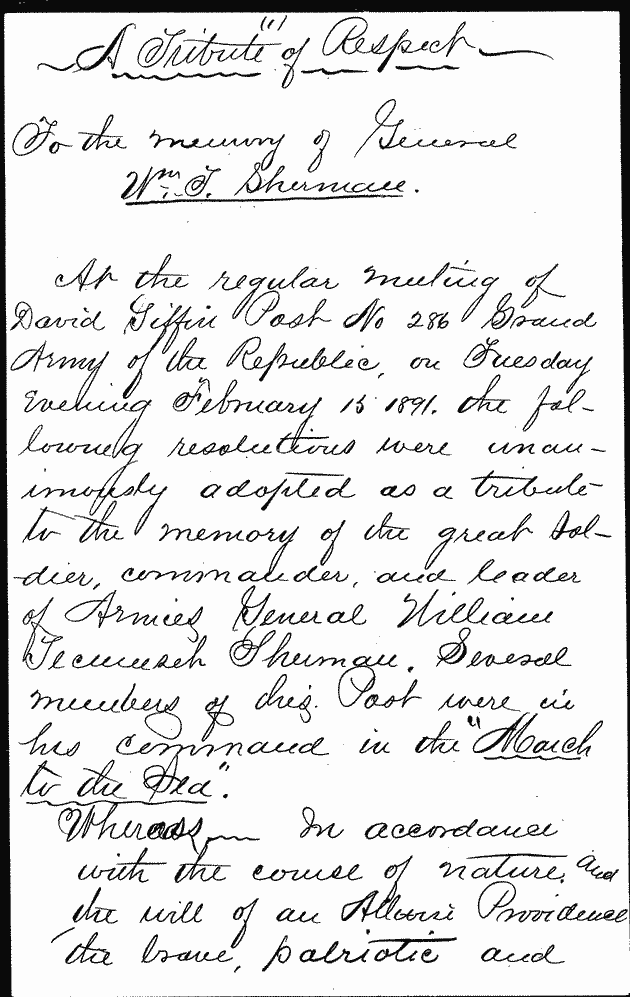 (1)
A Tribute of Respect
To the memory of General
Wm. T. Sherman.
At the regular meeting of
David Giffin Post No 286 Grand
Army of the Republic, on Tuesday
Evening February 15 1891. the fol-
lowing resolutions were unan-
imously adopted as a tribute
to the memory of the great sol-
dier, commander, and leader
of Armies General William
Tecumseh Sherman. Several
members of this Post were in
his command in the "March
to the Sea".
Whereas, In accordance
with the course of nature, and
the will of an Allwise Providence
the brave, patriotic and